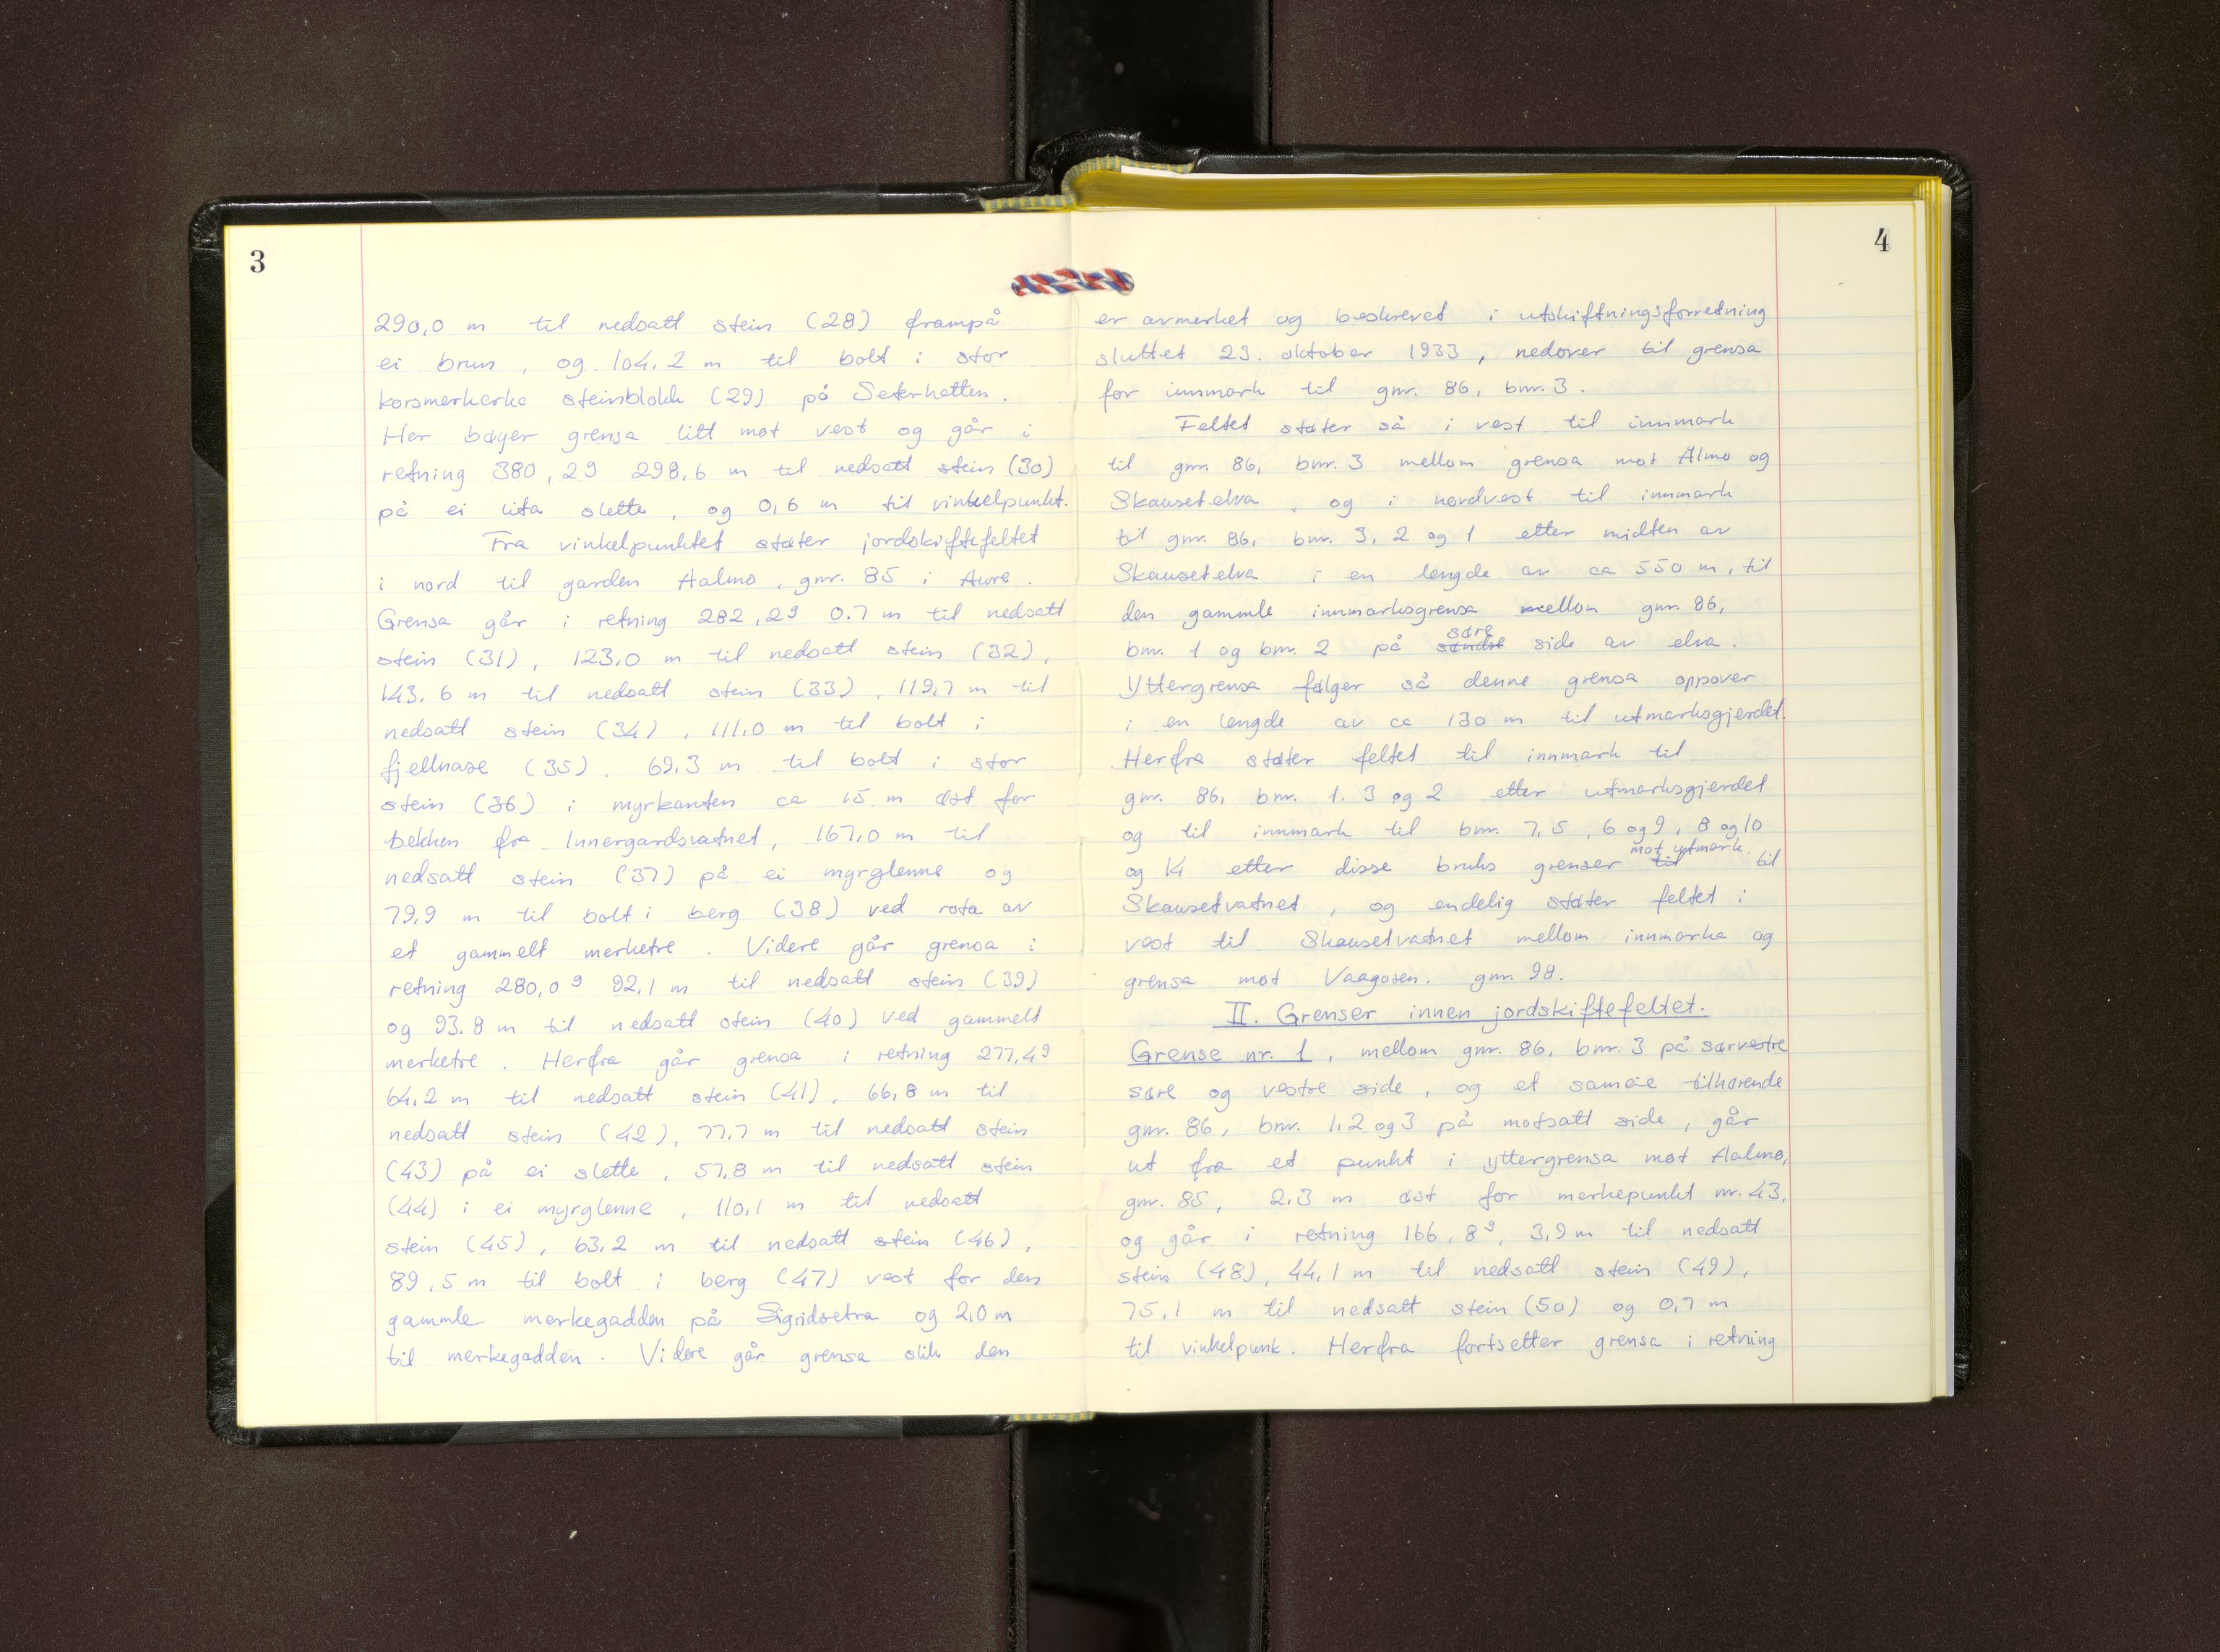 3
290,0 m til nedsatt stein (28) frampå
ei brun, og 104,2 m til bolt i stor
korsmerkerke steinblokk (29) på Seterhetten.
Her bøyer grensa litt mot vest og går i
retning 380,2g 298,6 m til nedsatt stein (30)
på ei lita slette, og 0,6 m til vinkelpunkt.
Fra vinkelpunktet støter jordskiftefeltet
i nord til garden Aalmo, gnr. 85 i Aure.
Grensa går i retning 282,2g 0.7 m til nedsatt
stein (31), 123,0 m til nedsatt stein (32),
143,6 m til nedsatt stein (33), 119,7 m til
nedsatt stein (34), 111,0 m til bolt i
fjellnase (35), 69,3 m til bolt i stor
stein (36) i myrkanten ca 15 m øst for
bekken fra Innergardsvatnet, 167,0 m til
nedsatt stein (37) på ei myrglenne og
79,9 m til bolt i berg (38) ved rota av
et gammelt merketre. Videre går grensa i
retning 280,0g 92,1 m til nedsatt stein (39)
og 93,8 m til nedsatt stein (40) ved gammelt
merketre. Herfra går grensa i retning 277,4g
64,2 m til nedsatt stein (41), 66,8 m til
nedsatt stein (42), 77,7 m til nedsatt stein
(43) på ei slette, 57,8 m til nedsatt stein
(44) i ei myrglenne, 110,1 m til nedsatt
stein (45), 63,2 m til nedsatt stein (46),
89,5 m til bolt i berg (47) vest for den
gammle merkegadden på Sigridsetra og 2,0 m
til merkegadden. Videre går grensa slik den
4
er avmerket og beskrevet i utskiftningsforretning
sluttet 23. oktober 1933, nedover til grensa
for innmark til gnr. 86, bnr. 3.
Feltet støter så i vest til innmark
til gnr. 86, bnr. 3 mellom grensa mot Almo og
Skausetelva, og i nordvest til innmark
til gnr. 86, bnr. 3, 2 og 1 etter midten av
Skausetelva i en lengde av ca 550 m, til
den gammle innmarksgrensa mellom gnr. 86,
bnr. 1 og bnr. 2 på søndre søre side av elva.
Yttergrensa følger så denne grensa oppover
i en lengde av ca 130 m til utmarksgjerdet.
Herfra støter feltet til innmark til
gnr. 86, bnr. 1, 3 og 2 etter utmarksgjerdet
og til innmark til bnr. 7, 5, 6 og 9, 8 og 10
og 14 etter disse bruks grenser til mot utmark. til
Skausetvatnet, og endelig støter feltet i
vest til Skausetvatnet mellom innmarka og
grensa mot Vaagosen, gnr. 98.
II. Grenser innen jordskiftefeltet.
Grense nr. 1, mellom gnr. 86, bnr. 3 på sørvestre
søre og vestre side, og et sameie tilhørende
gnr. 86, bnr. 1, 2 og 3 på motsatt side, går
ut fra et punkt i yttergrensa mot Aalmo,
gnr. 85, 2,3 m øst for merkepunkt nr. 43,
og går i retning 166,8g, 3,9 m til nedsatt
stein (48), 44,1 m til nedsatt stein (49),
75,1 m til nedsatt stein (50) og 0,7 m
til vinkelpunk. Herfra fortsetter grensa i retning